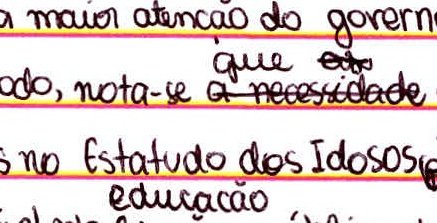 a maior atenção do govern
que
odo, nota-se a necessidade
s no Estatudo dos Idosos
educação